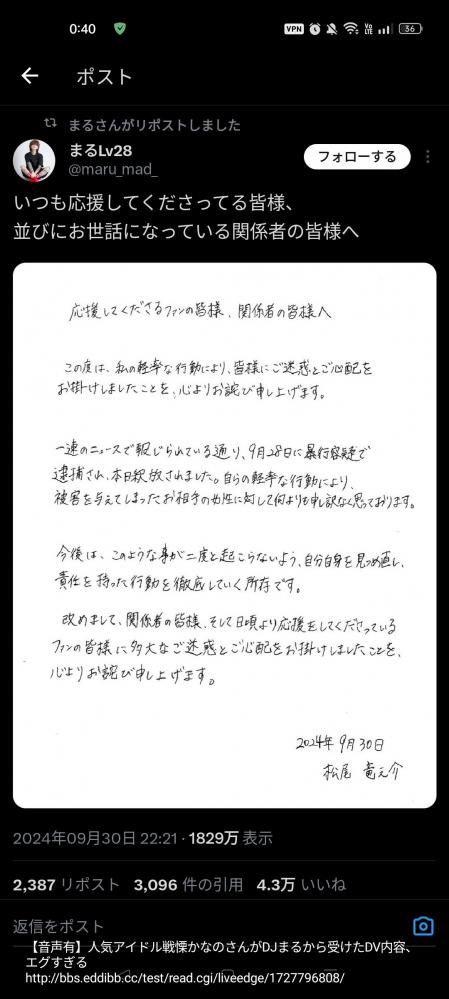 0:40
VPN
Vo
LTE
36
ポスト
まるさんがリポストしました
まるLv28
フォローする
@maru_mad_
いつも応援してくださってる皆様、
並びにお世話になっている関係者の皆様へ
応援してくださるファンの皆様、関係者の皆様へ
この度は、私の軽率な行動により、皆様にご迷惑とご心配を
お掛けしましたことを、心よりお詫び申し上げます。
一連のニュースで報じられている通り、9月28日に暴行容疑で
逮捕され、本日釈放されました。自らの軽率な行動により、
被害を与えてしまったお相手の女性に対して何よりも申し訳なく思っております。
今後は、このような事が二度と起こらないよう、自分自身を見つめ直し、
責任を持った行動を徹底していく所存です。
改めまして、関係者の皆様、そして日頃より応援をしてくださっている
ファンの皆様に多大なご迷惑とご心配をお掛けしましたことを、
心よりお詫び申し上げます。
2024年 9月30日
松尾 竜之介
2024年09月30日 22:21 · 1829万 表示
2,387 リポスト 3,096 件の引用 4.3万 いいね
返信をポスト
【音声有】人気アイドル戦慄かなのさんがDJまるから受けたDV内容、
エグすぎる
http://bbs.eddibb.cc/test/read.cgi/liveedge/1727796808/